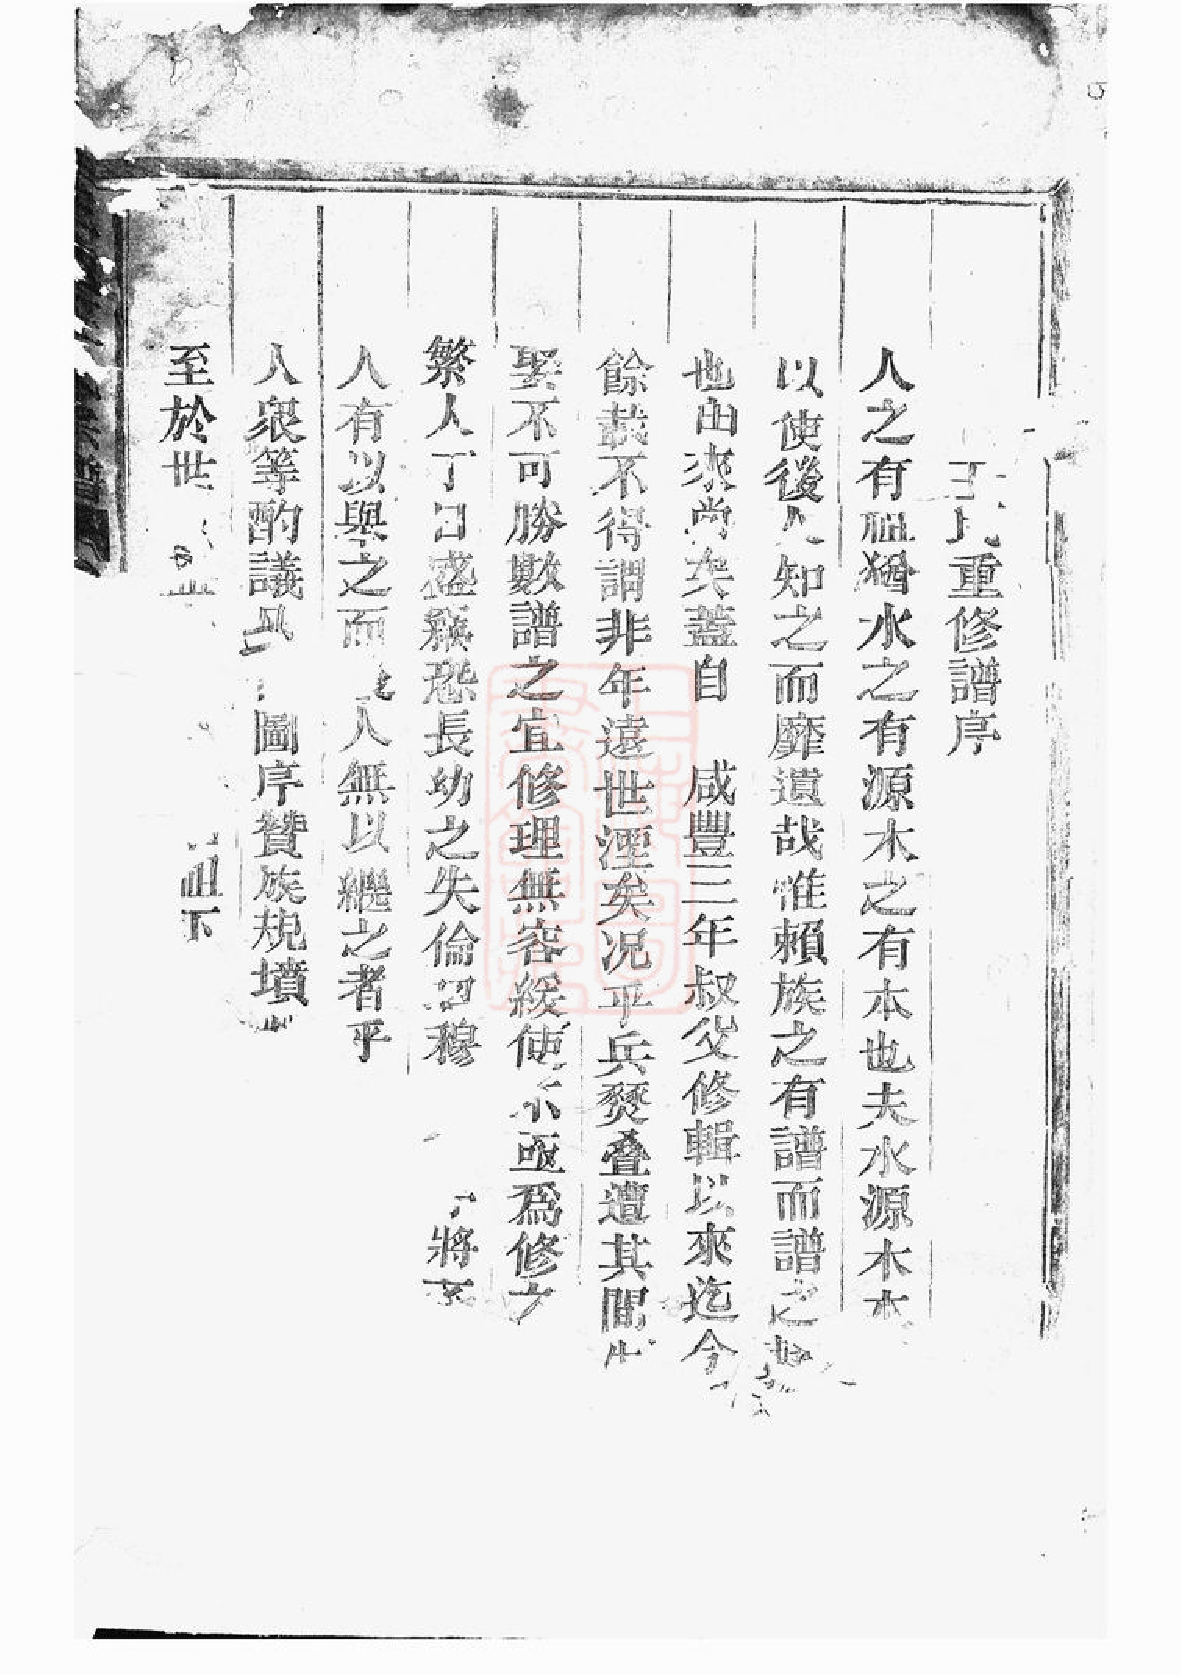 氏重修譜序
人之有祖猶水之有源木之有本也夫水源木本
以使後人知之而靡遺哉惟賴族之有譜而譜之
也由來尚矣蓋自 咸豐三年叔父修輯以來迄今
餘載不得謂非年遠世湮矣况乎兵燹叠遭其間
娶不可勝數譜之宜修理無容緩使不亟爲修
繁人丁日盛竊恐長幼之失倫昭穆 將
人有以與之而 人無以繼之者乎
人衆等酌議 圖序贊族規墳
至於世 祖下